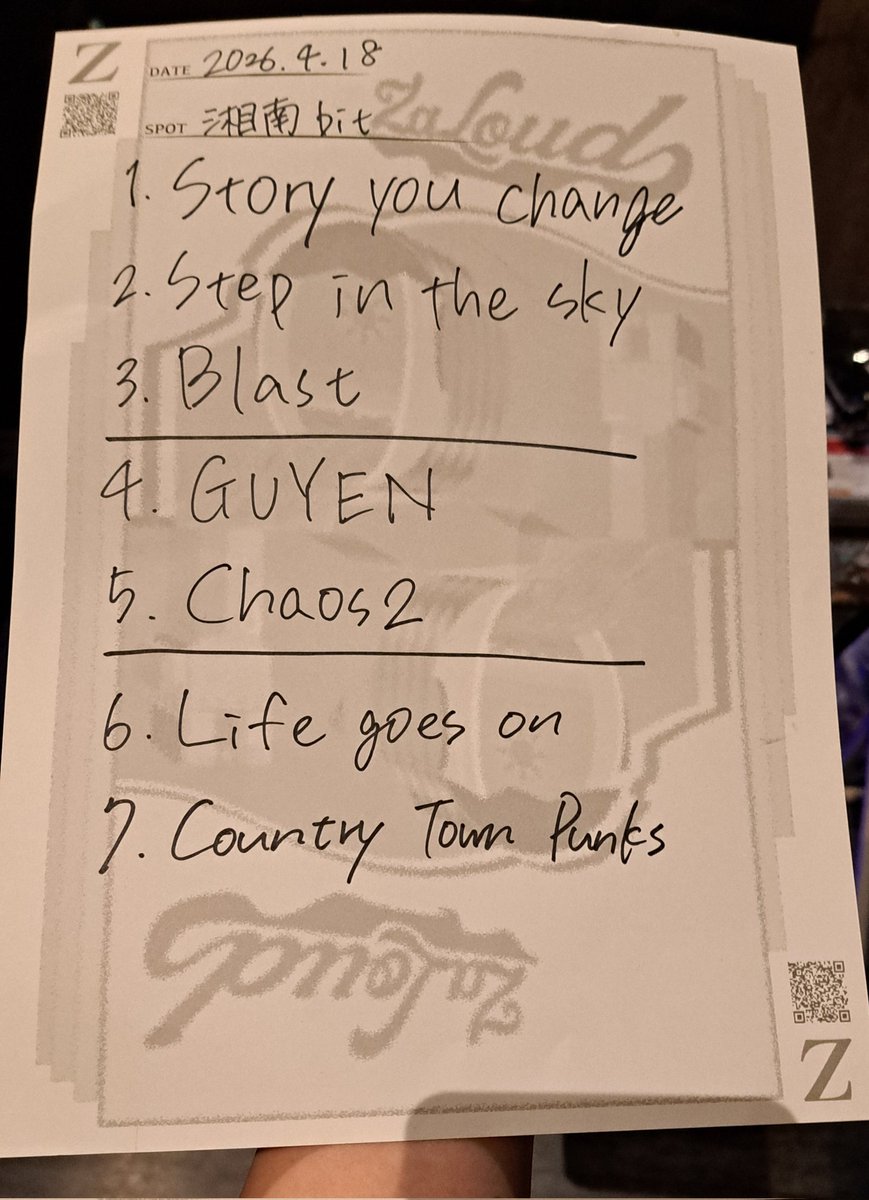 Z
DATE 2026.4.18
SPOT 湘南 bit
ZaLoud
1. Story you change
2. Step in the sky
3. Blast
4. GUYEN
5. Chaos2
6. Life goes on
7. Country Town Punks
ZaLoud
Z